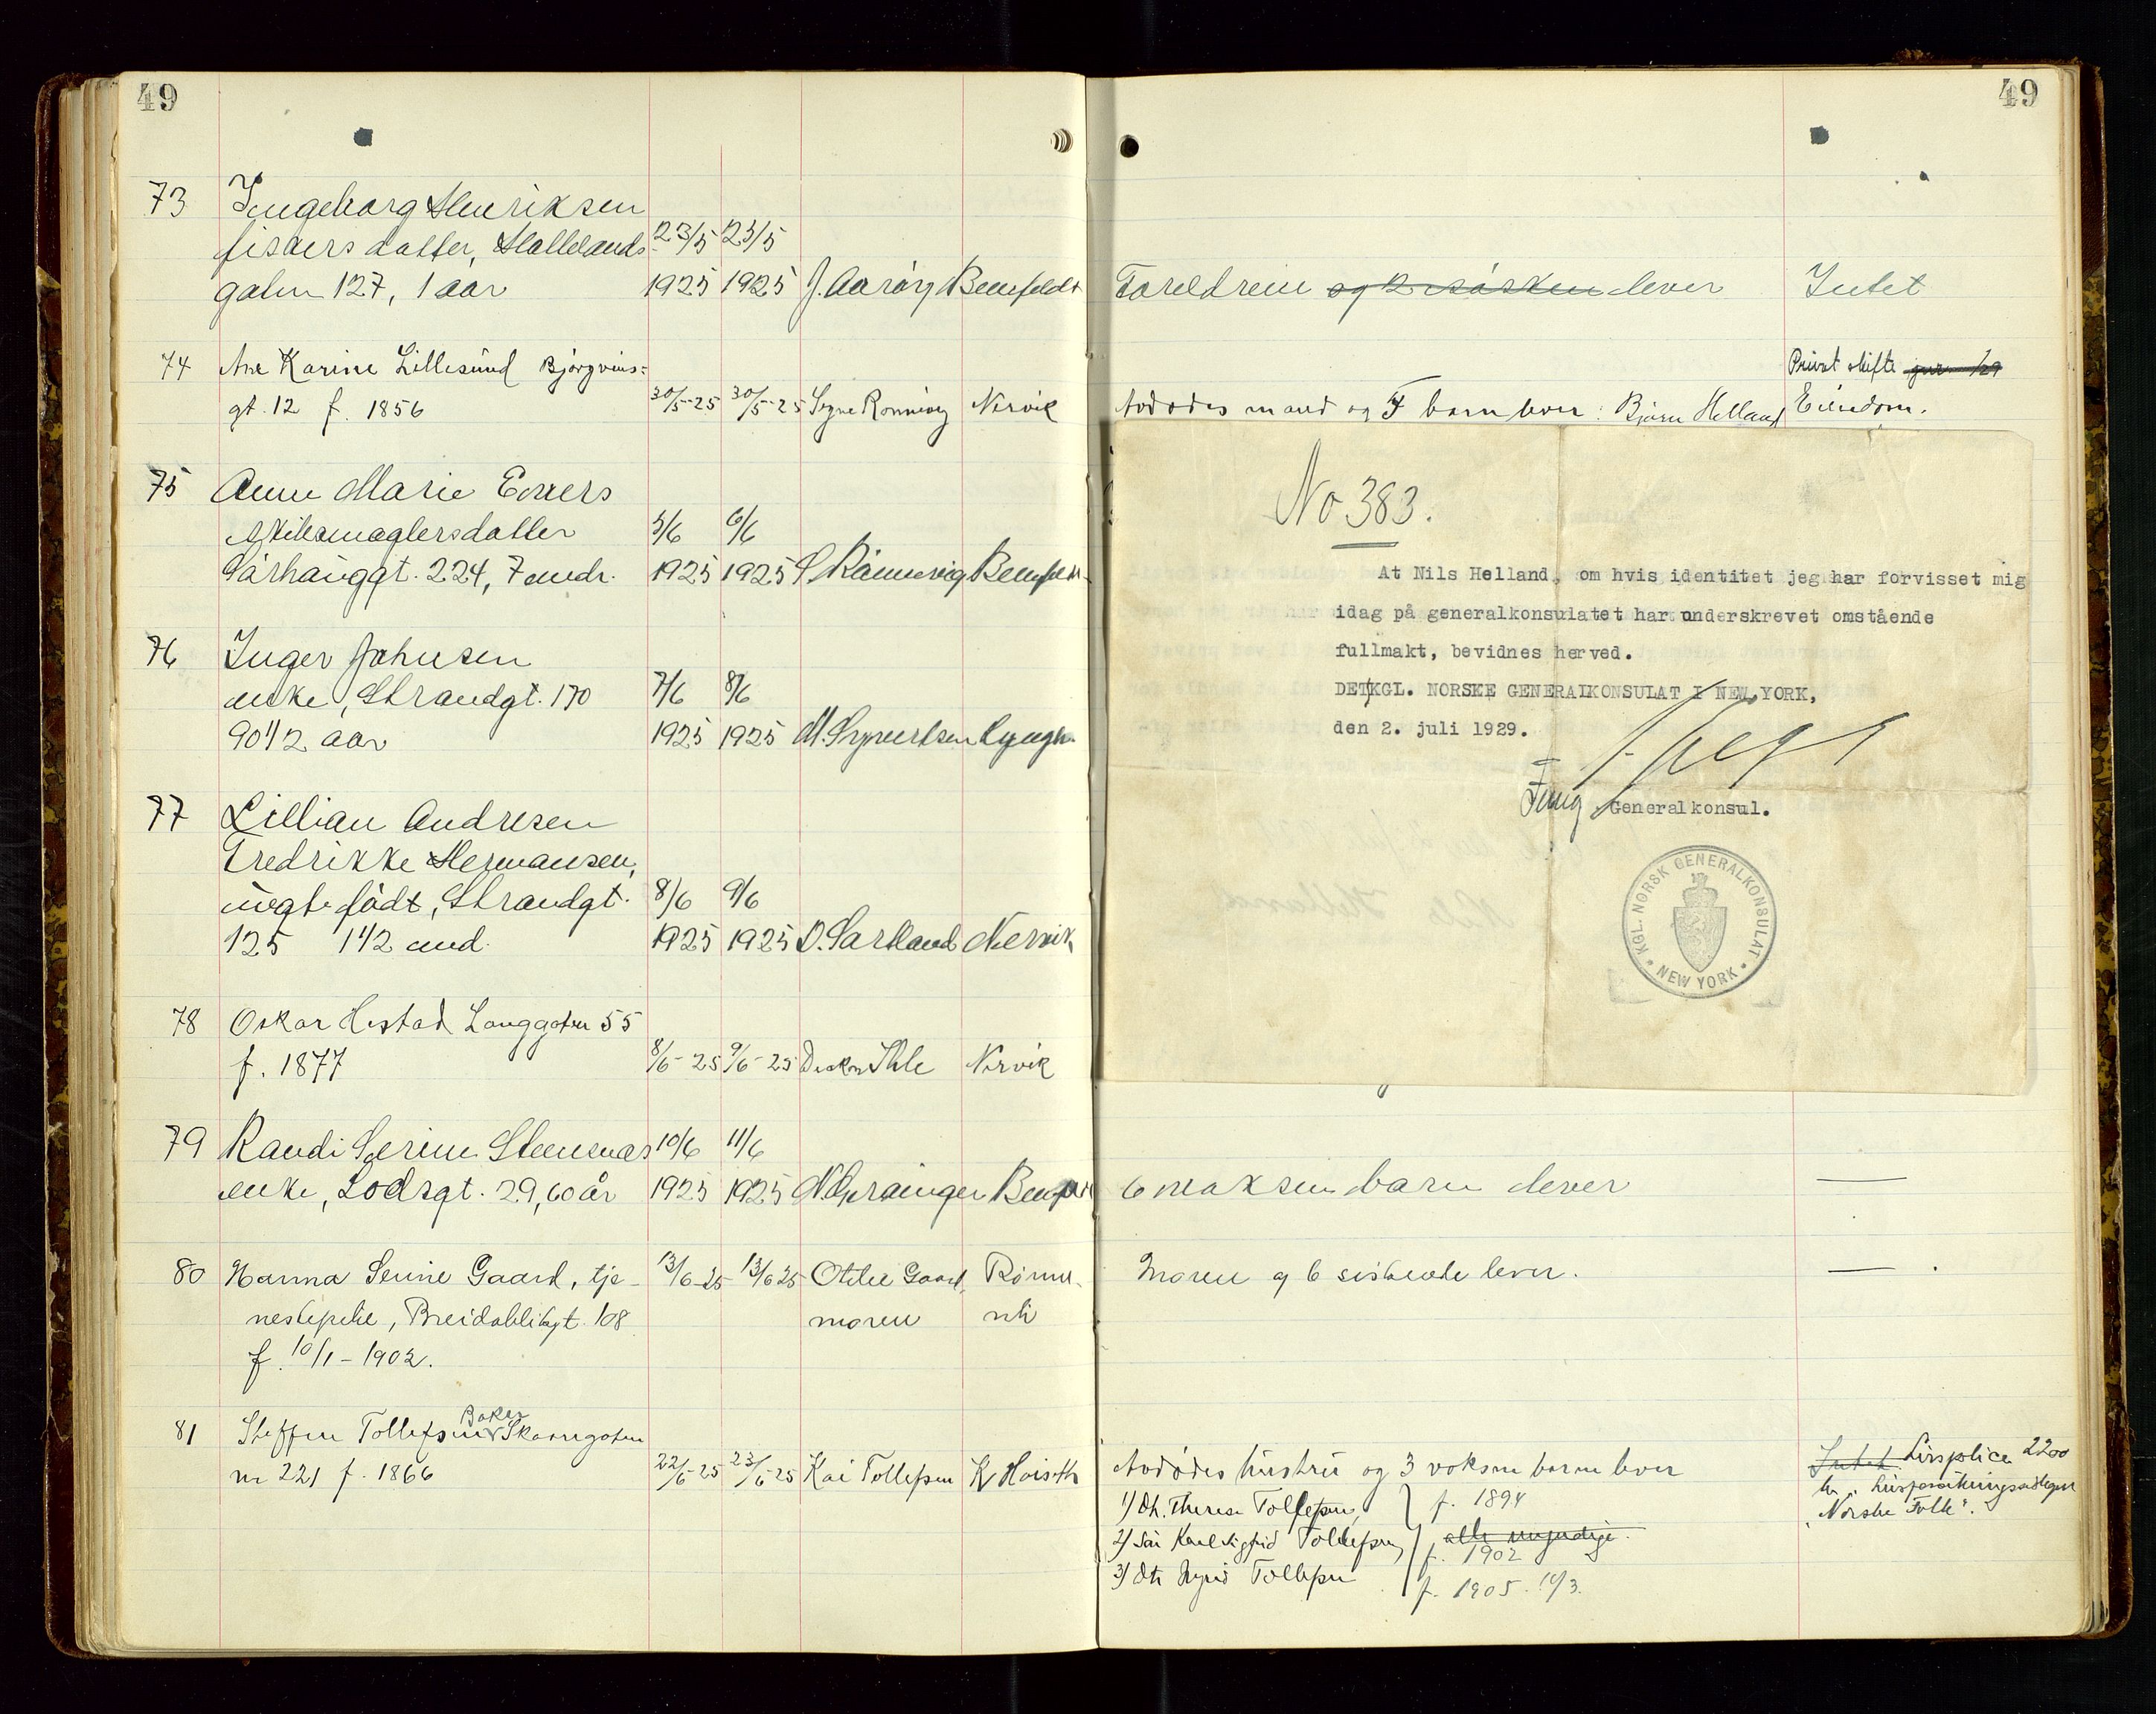 49
73 Ingeborg Henriksen
fiskers datter, Hallelands- 23/5 23/5
gaten 127, 1 aar 1925 1925 J. Aarøy Bennfeldt
74 Ane Karine Lillesund Bjørgvins=
gt. 12 f. 1856 30/5-25 30/5-25 Signe Rønnevig Nervik
75 Anne Marie Evers
skibsmæglersdatter 5/6 6/6
Sørhauggt. 224, 7 mdr. 1925 1925 S Rønnevig
76 Inger Johnsen
enke, Strandgt. 170 7/6 8/6
90 1/2 aar 1925 1925 M. Syvertsen
77 Lillian Andresen
Fredrikke Hermansen,
uegte født, Strandgt. 8/6 9/6
125 1 1/2 md. 1925 1925 Nervik
78 Oskar Hestad Langgaten 55
f. 1877 8/6-25 9/6-25 Ihle Nervik
79 Randi Serine Steensnæs 10/6 11/6
enke, Lodsgt. 29, 60 år 1925 1925
80 Hanna Serine Gaard, tje- 13/6-25 13/6 25 Otilie Gaard,
nestepike, Breidablikgt. 108 moren
f. 10/1-1902.
81 Steffen Tollefsen Baker Skaaregaten
nr 221 f. 1866 22/6-25 23/6-25 Kai Tollefsen
49
Foreldrene og 2 søsken lever Intet
Privat skifte
Avdødes mand og 7 barn lever: Bjarne Helland Eiendom.
No 383.
At Nils Helland, om hvis identitet jeg har forvisset mig
idag på generalkonsulatet har underskrevet omstående
fullmakt, bevidnes herved.
DET KGL. NORSKE GENERALKONSULAT I NEW YORK,
den 2. juli 1929.
Fung. Generalkonsul.
KGL. NORSK GENERALKONSULAT
• NEW YORK •
6 voksen barn lever —
Moren og 6 søskende lever. —
Avdødes hustru og 3 voksne barn lever Intet Livspolice 2200
1) Dt. Therese Tollefsen, f. 1894
"Norske Folk".
2) Søn Karl Sigfrid Tollefsen, alle myndige.
f. 1902
3) Dt. Ingrid Tollefsen f. 1905. 14/3.